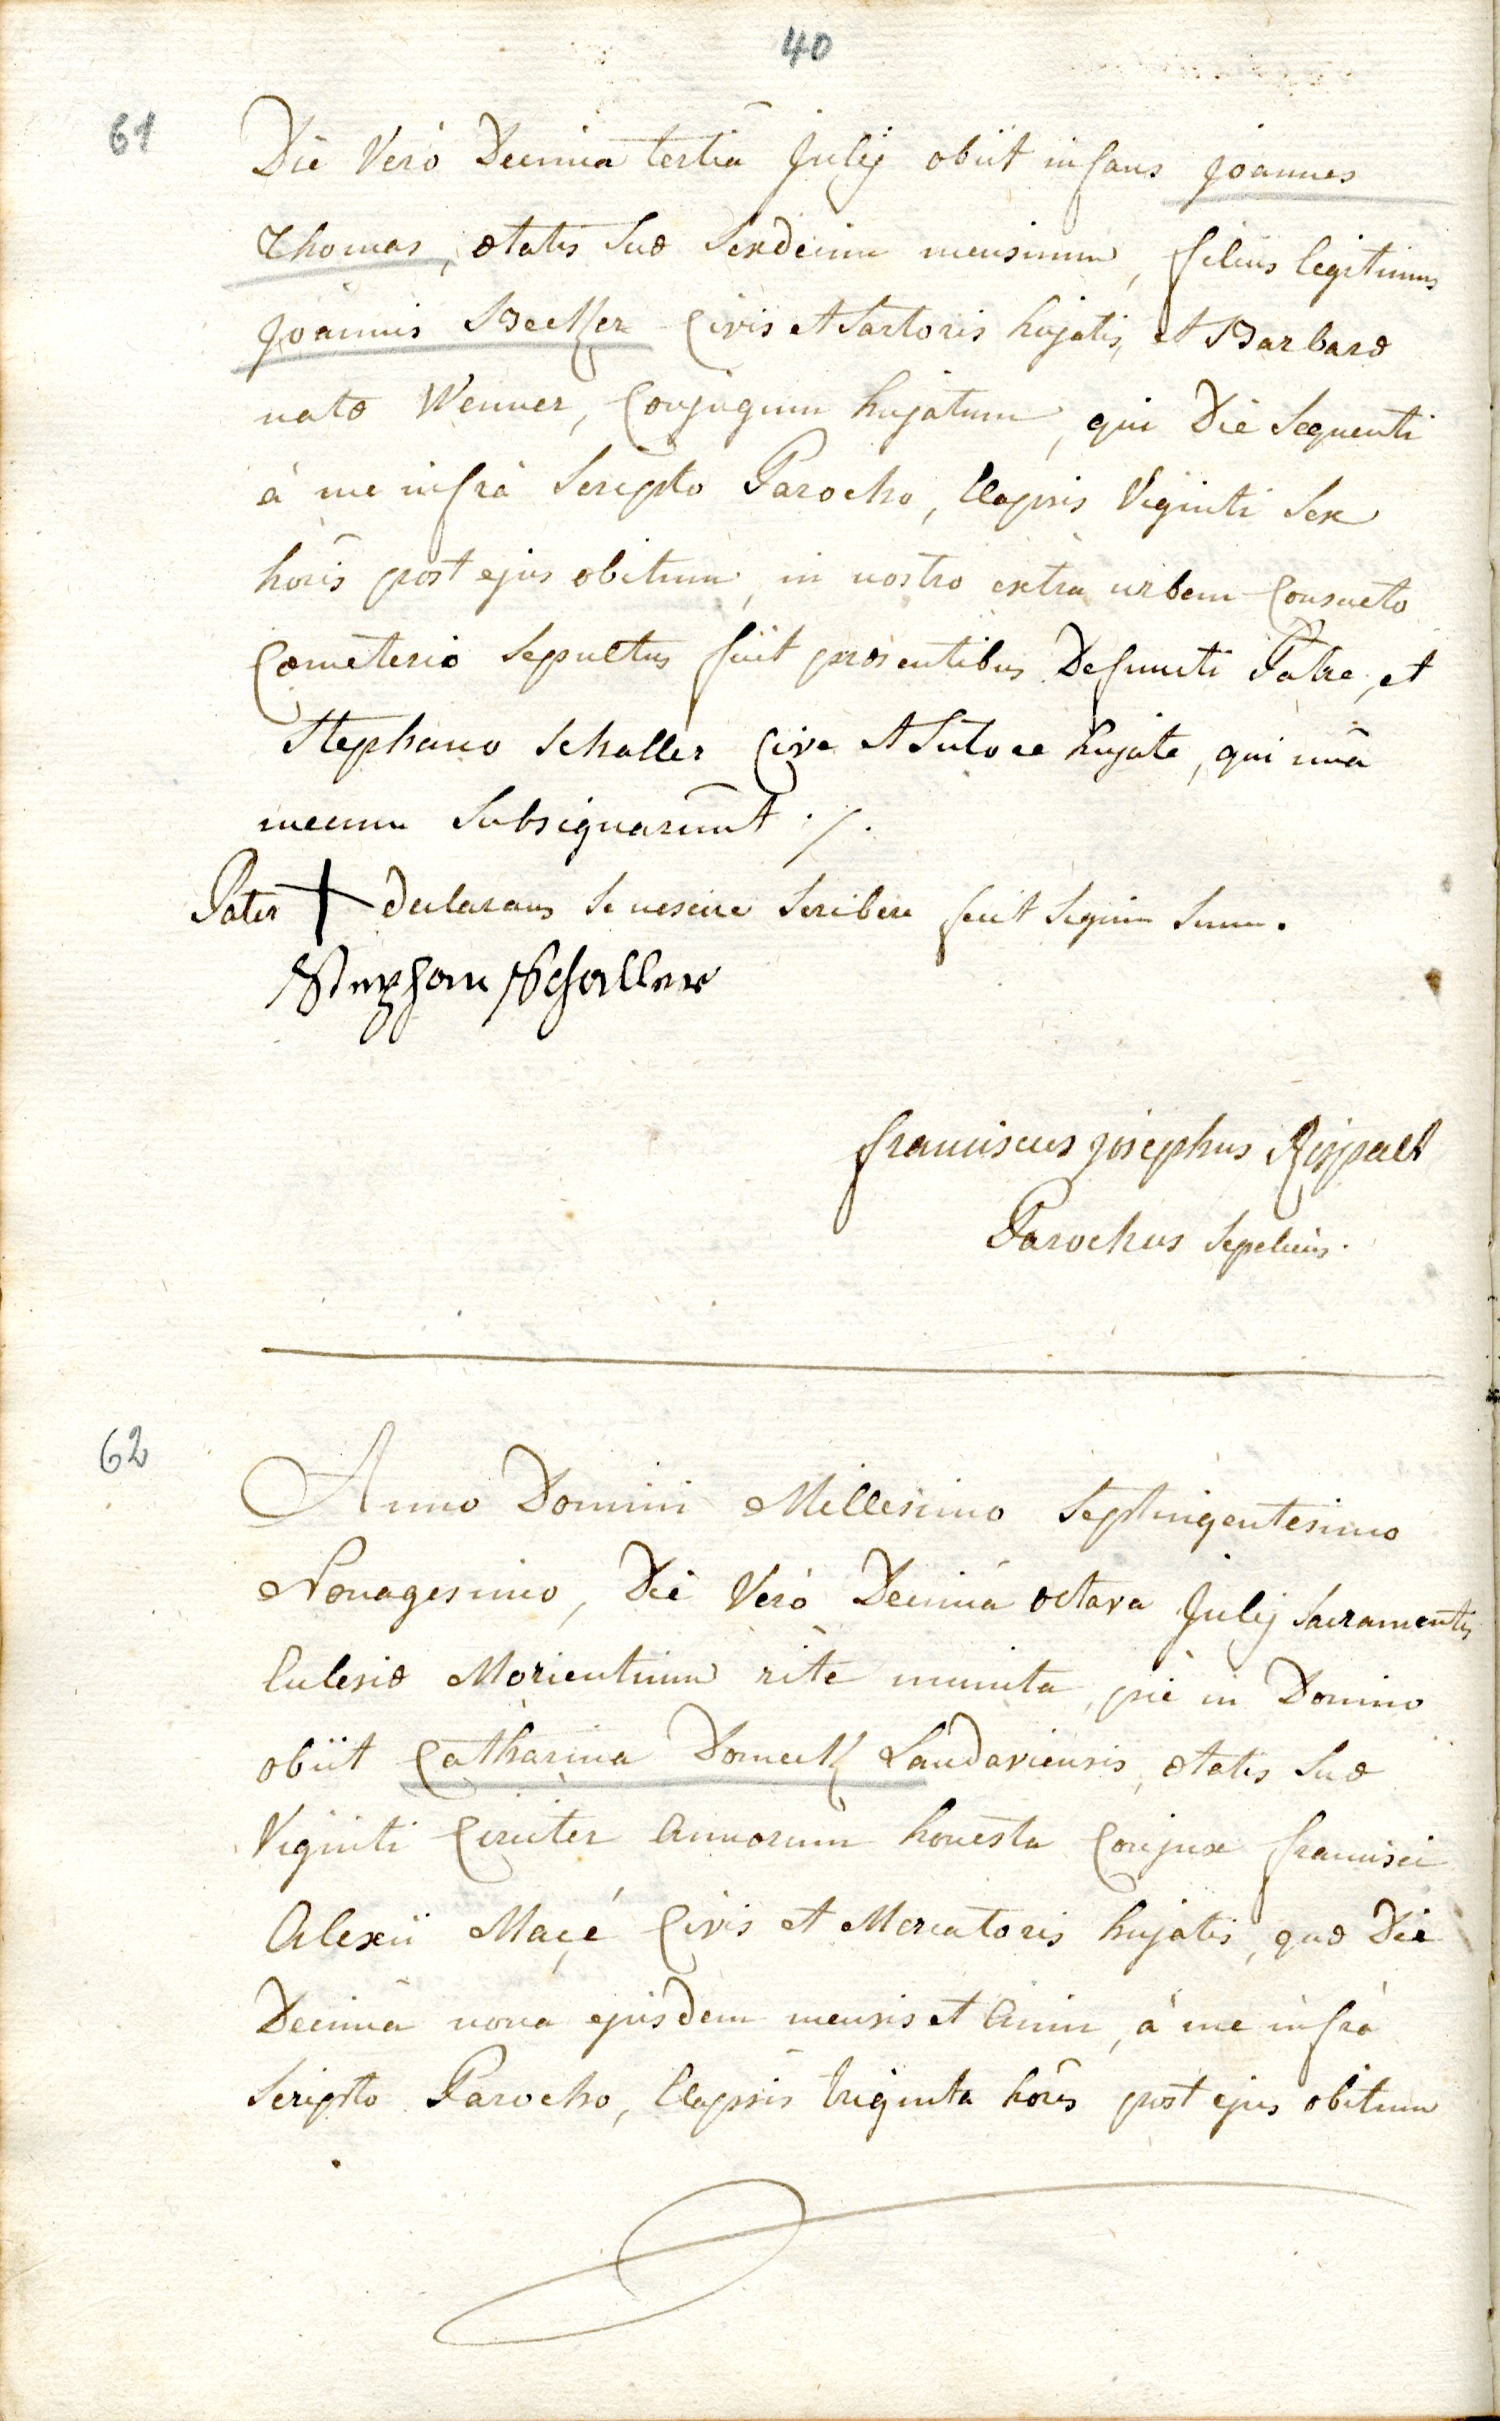 40
61
Die Verò Decima tertiâ Julij obiit infans Joannes
Thomas, ætatis Suæ Sexdecim mensium, filius legitimus
Joannis Becker Civis et Sartoris hujatis, et Barbaræ
natæ Wenner, Conjugum hujatum, qui Die Sequenti
à me infrà Scripto Parocho, Elapsis Viginti Sex
horis post ejus obitum, in nostro extra urbem Consueto
Cœmeterio Sepultus fuit præsentibus Defuncti Patre, et
Stephano Schaller Cive et Sutore hujate, qui unà
mecum Subsignarunt ./.
Pater + declarans Se nescire Scribere fecit Signum Suum.
Stephan Schaller
franciscus josephus
Parochus Sepeliens.
62
Anno Domini Millesimo Septingentesimo
Nonagesimo, Die Verò Decimâ octava Julij Sacramentis
Eclesiæ Morientium ritè munita, piè in Domino
obiit Catharina Domeck Landaviensis, ætatis Suæ
Viginti Circiter Annorum honesta Conjux francisci
Alexii Maçé Civis et Mercatoris hujatis, quæ Die
Decimâ nona ejusdem mensis et Anni, à me infrà
Scripto Parocho, Elapsis triginta horis post ejus obitum